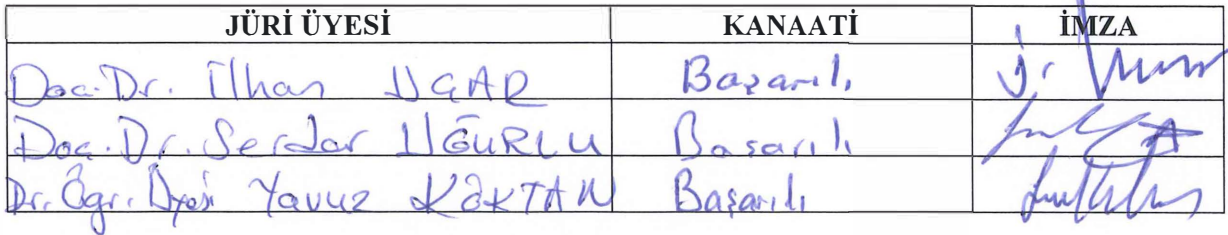 JÜRİ ÜYESİ KANAATİ İMZA
Doç. Dr. İlhan UÇAR Başarılı
Doç. Dr. Serdar UĞURLU Başarılı
Dr. Öğr. Üyesi Yavuz KÖKTAN Başarılı